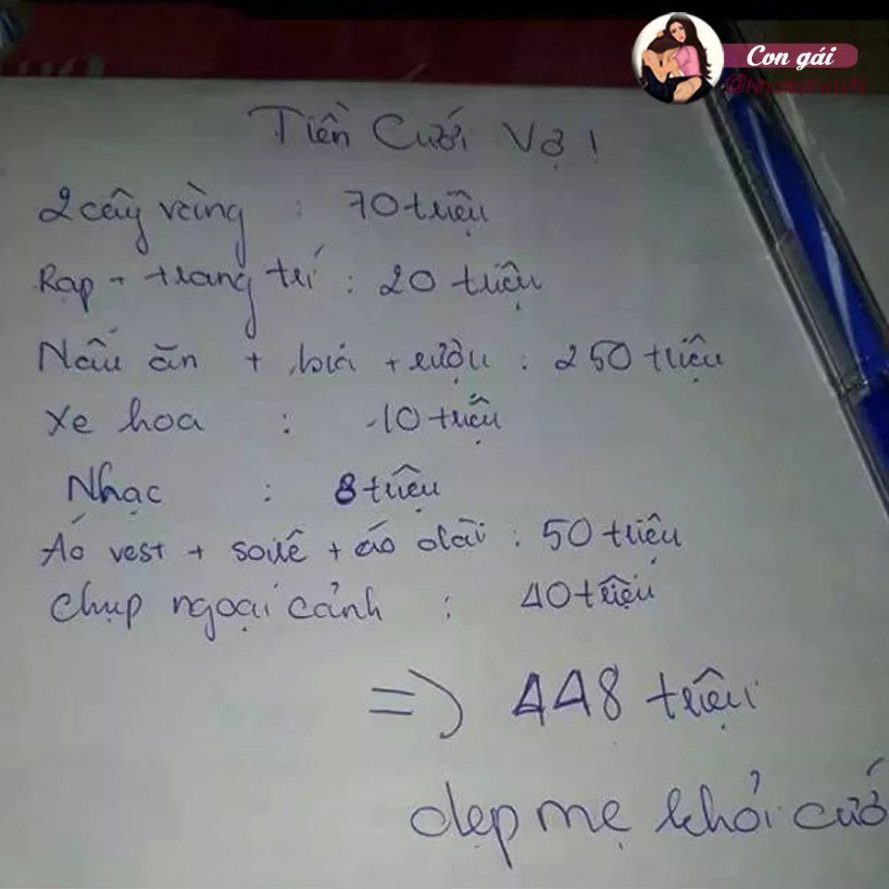 Con gái
Tiền Cưới Vợ !
2 cây vàng : 70 triệu
Rạp - trang trí : 20 triệu
Nấu ăn + bia + rượu : 250 triệu
Xe hoa : 10 triệu
Nhạc : 8 triệu
Áo vest + soiê + áo dài : 50 triệu
Chụp ngoại cảnh : 40 triệu
=> 448 triệu
dẹp mẹ khỏi cướ